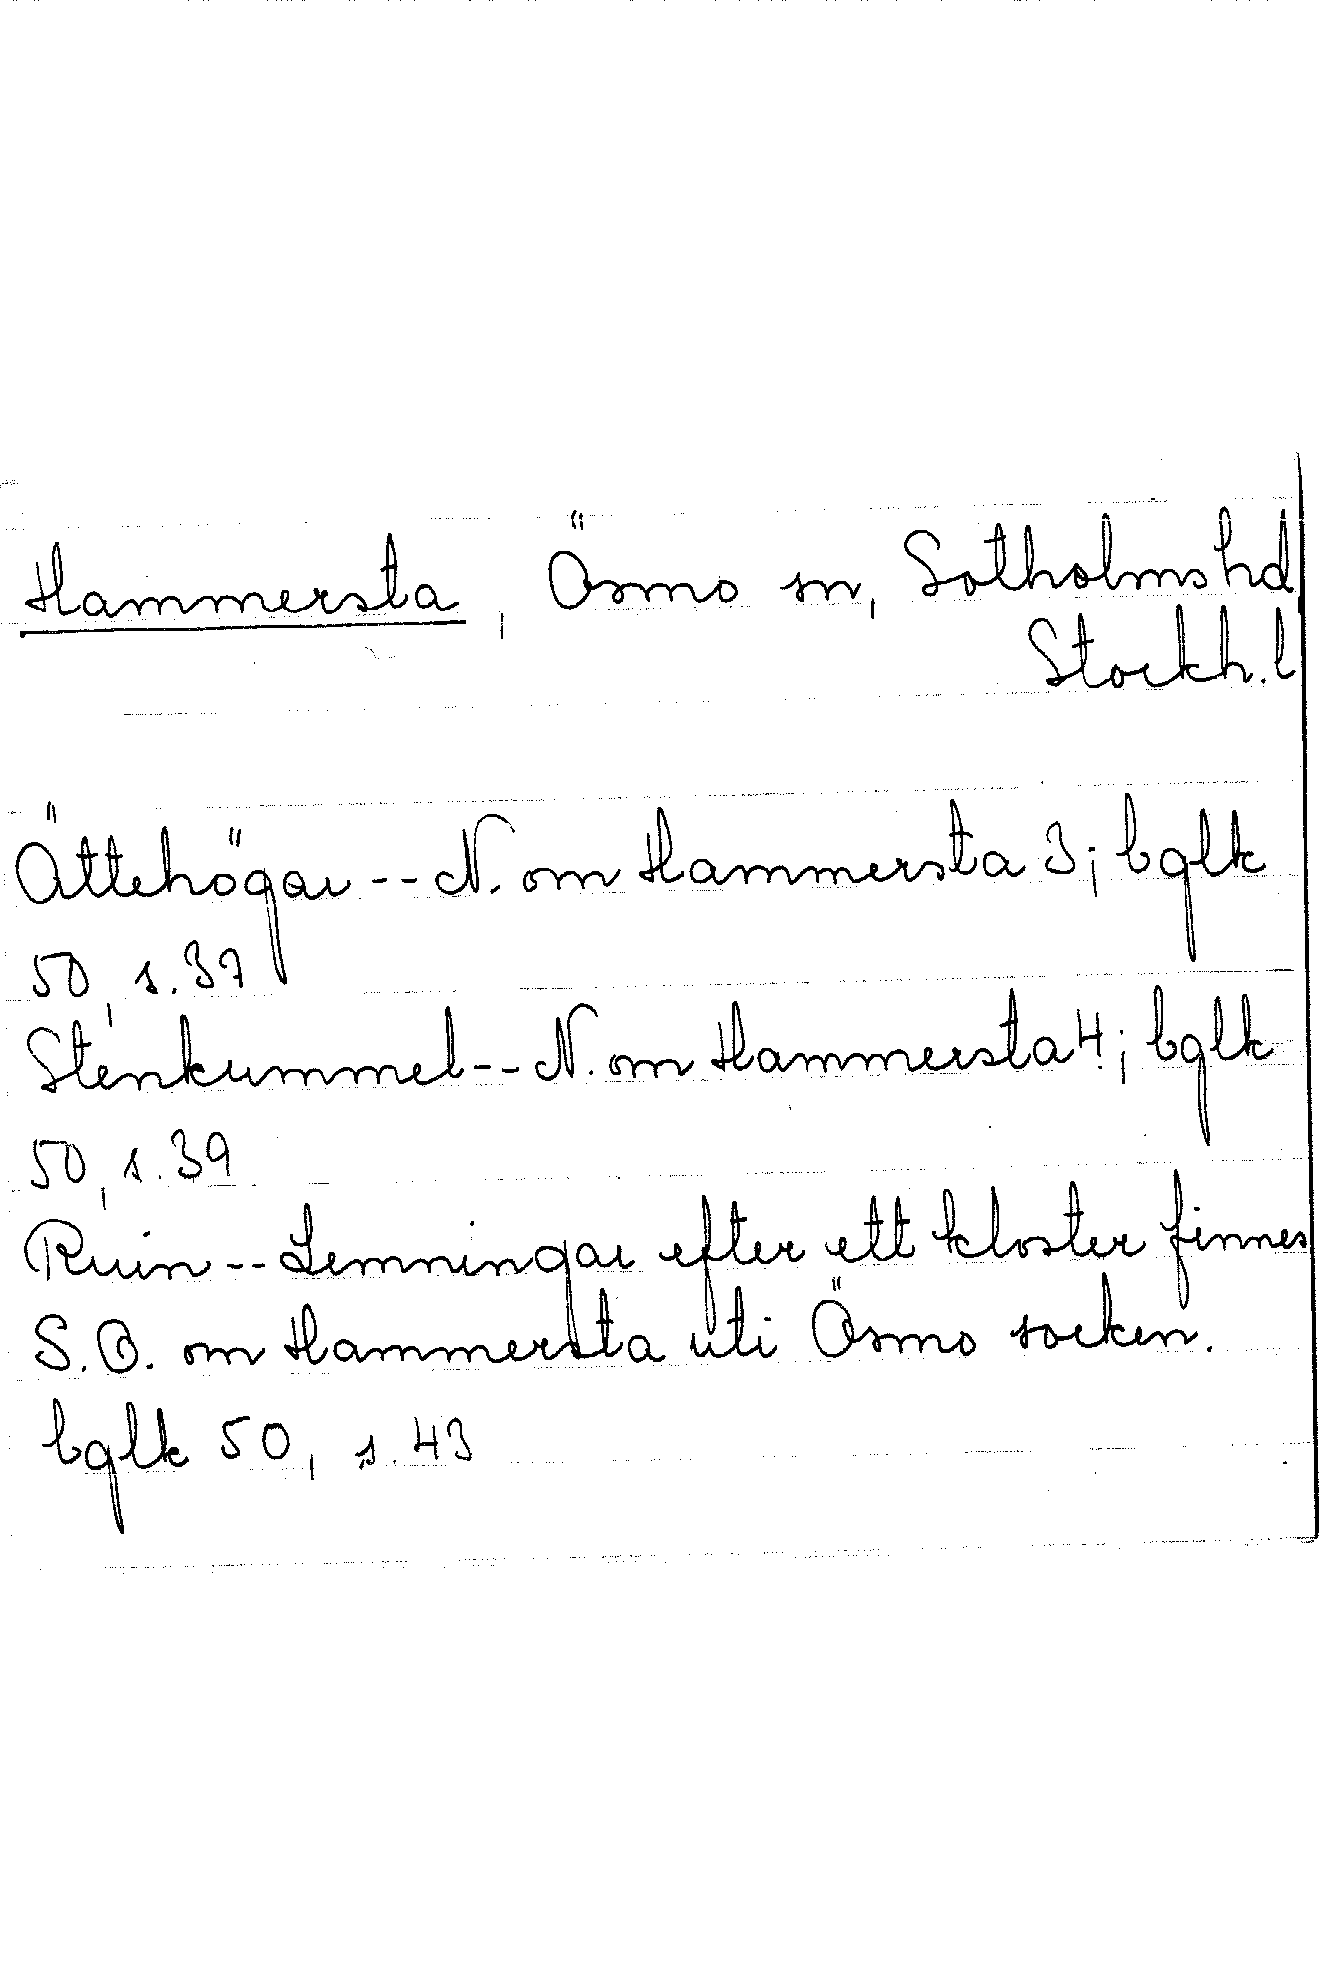 Hammersta, Ösmo sn, Sotholms hd,
Stockh. l
Ättehögar -- N. om Hammersta 3; bglk
50, s. 37
Stenkummel -- N. om Hammersta 4; bglk
50, s. 39
Ruin -- Lemningar efter ett kloster finnes
S.O. om Hammersta uti Ösmo socken.
bglk 50, s. 43